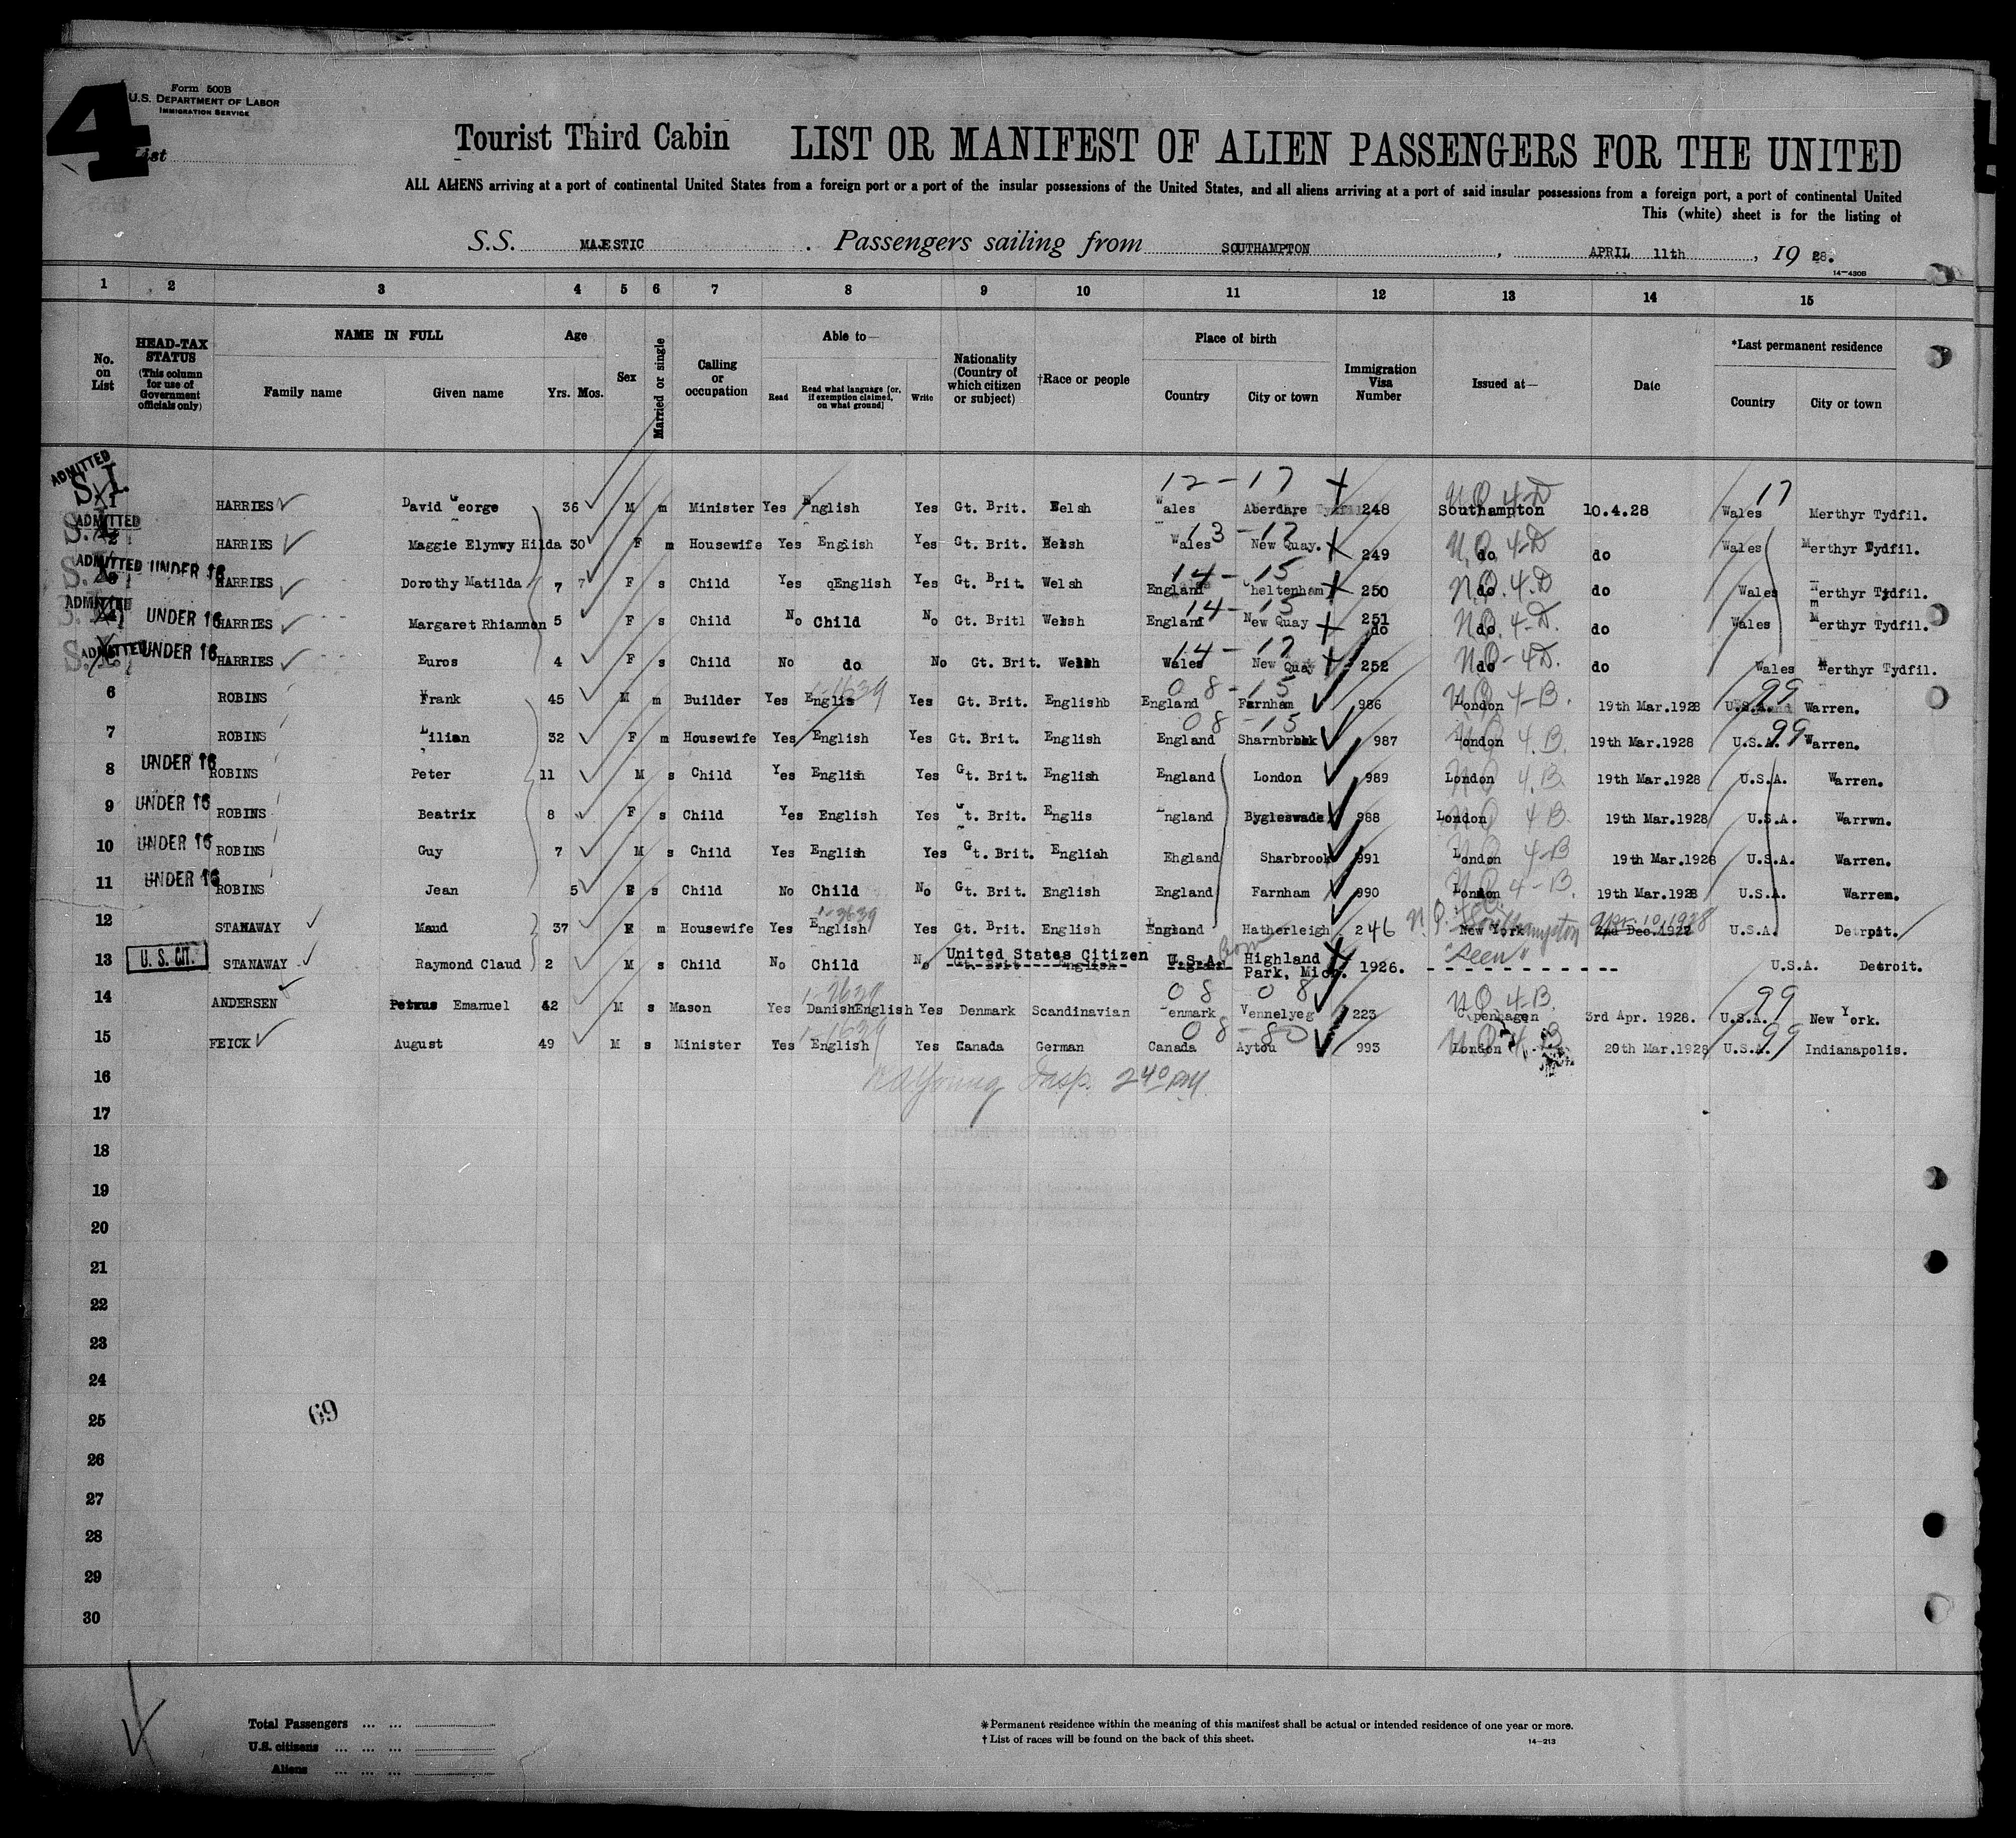 4
Form 500B
U.S. DEPARTMENT OF LABOR
IMMIGRATION SERVICE
List
Tourist Third Cabin LIST OR MANIFEST OF ALIEN PASSENGERS FOR THE UNITED
ALL ALIENS arriving at a port of continental United States from a foreign port or a port of the insular possessions of the United States, and all aliens arriving at a port of said insular possessions from a foreign port, a port of continental United
This (white) sheet is for the listing of
S.S. MAJESTIC . Passengers sailing from SOUTHAMPTON , APRIL 11th , 19 28.
14-430B
1 2 3 4 5 6 7 8 9 10 11 12 13 14 15
No. on List HEAD-TAX STATUS (This column for use of Government officials only) NAME IN FULL Family name Given name Age Yrs. Mos. Sex Married or single Calling or occupation Able to— Read Read what language [or, if exemption claimed, on what ground] Write Nationality (Country of which citizen or subject) †Race or people Place of birth Country City or town Immigration Visa Number Issued at— Date *Last permanent residence Country City or town
ADMITTED S.I. 12-17 + N.Q. 4-D 17
HARRIES David George 36 M m Minister Yes English Yes Gt. Brit. Welsh Wales Aberdare 248 Southampton 10.4.28 Wales Merthyr Tydfil.
ADMITTED 13-17 N.Q. 4-D
HARRIES Maggie Elynwy Hilda 30 F m Housewife Yes English Yes Gt. Brit. Welsh Wales New Quay. 249 do do Wales Merthyr Tydfil.
ADMITTED UNDER 16 14-15 N.Q. 4.D
HARRIES Dorothy Matilda 7 7 F s Child Yes qEnglish Yes Gt. Brit. Welsh England Cheltenham 250 do do Wales Merthyr Tydfil.
ADMITTED UNDER 16 14-15 N.Q. 4-D.
HARRIES Margaret Rhiannon 5 F s Child No Child No Gt. Britl Welsh England New Quay 251 do do do Wales Merthyr Tydfil.
ADMITTED UNDER 16 14-17 N.Q-4D.
HARRIES Euros 4 F s Child No do No Gt. Brit. Welsh Wales New Quay 252 do do Wales Merthyr Tydfil.
6 ROBINS Frank 45 M m Builder Yes Englis Yes Gt. Brit. Englishb England 08-15 Farnham 986 London N.Q. 4-B. 19th Mar.1928 U.S.A. 99 Warren.
7 ROBINS Lilian 32 F m Housewife Yes English Yes Gt. Brit. English England 08-15 Sharnbrook 987 London N.Q. 4.B. 19th Mar.1928 U.S.A. 99 Warren.
8 UNDER 16 ROBINS Peter 11 M s Child Yes English Yes Gt. Brit. English England London 989 London N.Q. 4.B. 19th Mar.1928 U.S.A. Warren.
9 UNDER 16 ROBINS Beatrix 8 F s Child Yes English Yes Gt. Brit. Englis England Bygleswade 988 London N.Q. 4B. 19th Mar.1928 U.S.A. Warrwn.
10 UNDER 16 ROBINS Guy 7 M s Child Yes English Yes Gt. Brit. English Ehgland Sharbrook 991 London N.Q. 4-B 19th Mar.1928 U.S.A. Warren.
11 UNDER 16 ROBINS Jean 5 F s Child No Child No Gt. Brit. English England Farnham 990 London N.Q. 4-B. 19th Mar.1928 U.S.A. Warren.
12 STANAWAY Maud 37 F m Housewife Yes English Yes Gt. Brit. English England Hatherleigh 246 New York Southampton 2nd Dec.1927 Apr. 10, 1928 U.S.A. Detroit.
13 U. S. CIT. STANAWAY Raymond Claud 2 M s Child No Child No United States Citizen Gt. Brit English U.S.A. England Born Highland Park, Mich. 1926. "Seen" U.S.A. Detroit.
14 ANDERSEN Petrus Emanuel 42 M s Mason Yes DanishEnglish Yes Denmark Scandinavian 08 Denmark 08 Vennelyeg 223 N.Q. 4-B. Copenhagen 3rd Apr. 1928. U.S.A. 99 New York.
15 FEICK August 49 M s Minister Yes English Yes Canada German Canada 08-80 Aytou 993 London N.Q. 4.B 20th Mar.1928 U.S.A. 99 Indianapolis.
16 Young Insp. 2 40 P.M.
17
18
19
20
21
22
23
24
25
69
26
27
28
29
30
Total Passengers ... ...
U.S. citizens ... ... ...
Aliens ... ... ...
*Permanent residence within the meaning of this manifest shall be actual or intended residence of one year or more.
† List of races will be found on the back of this sheet.
14-213